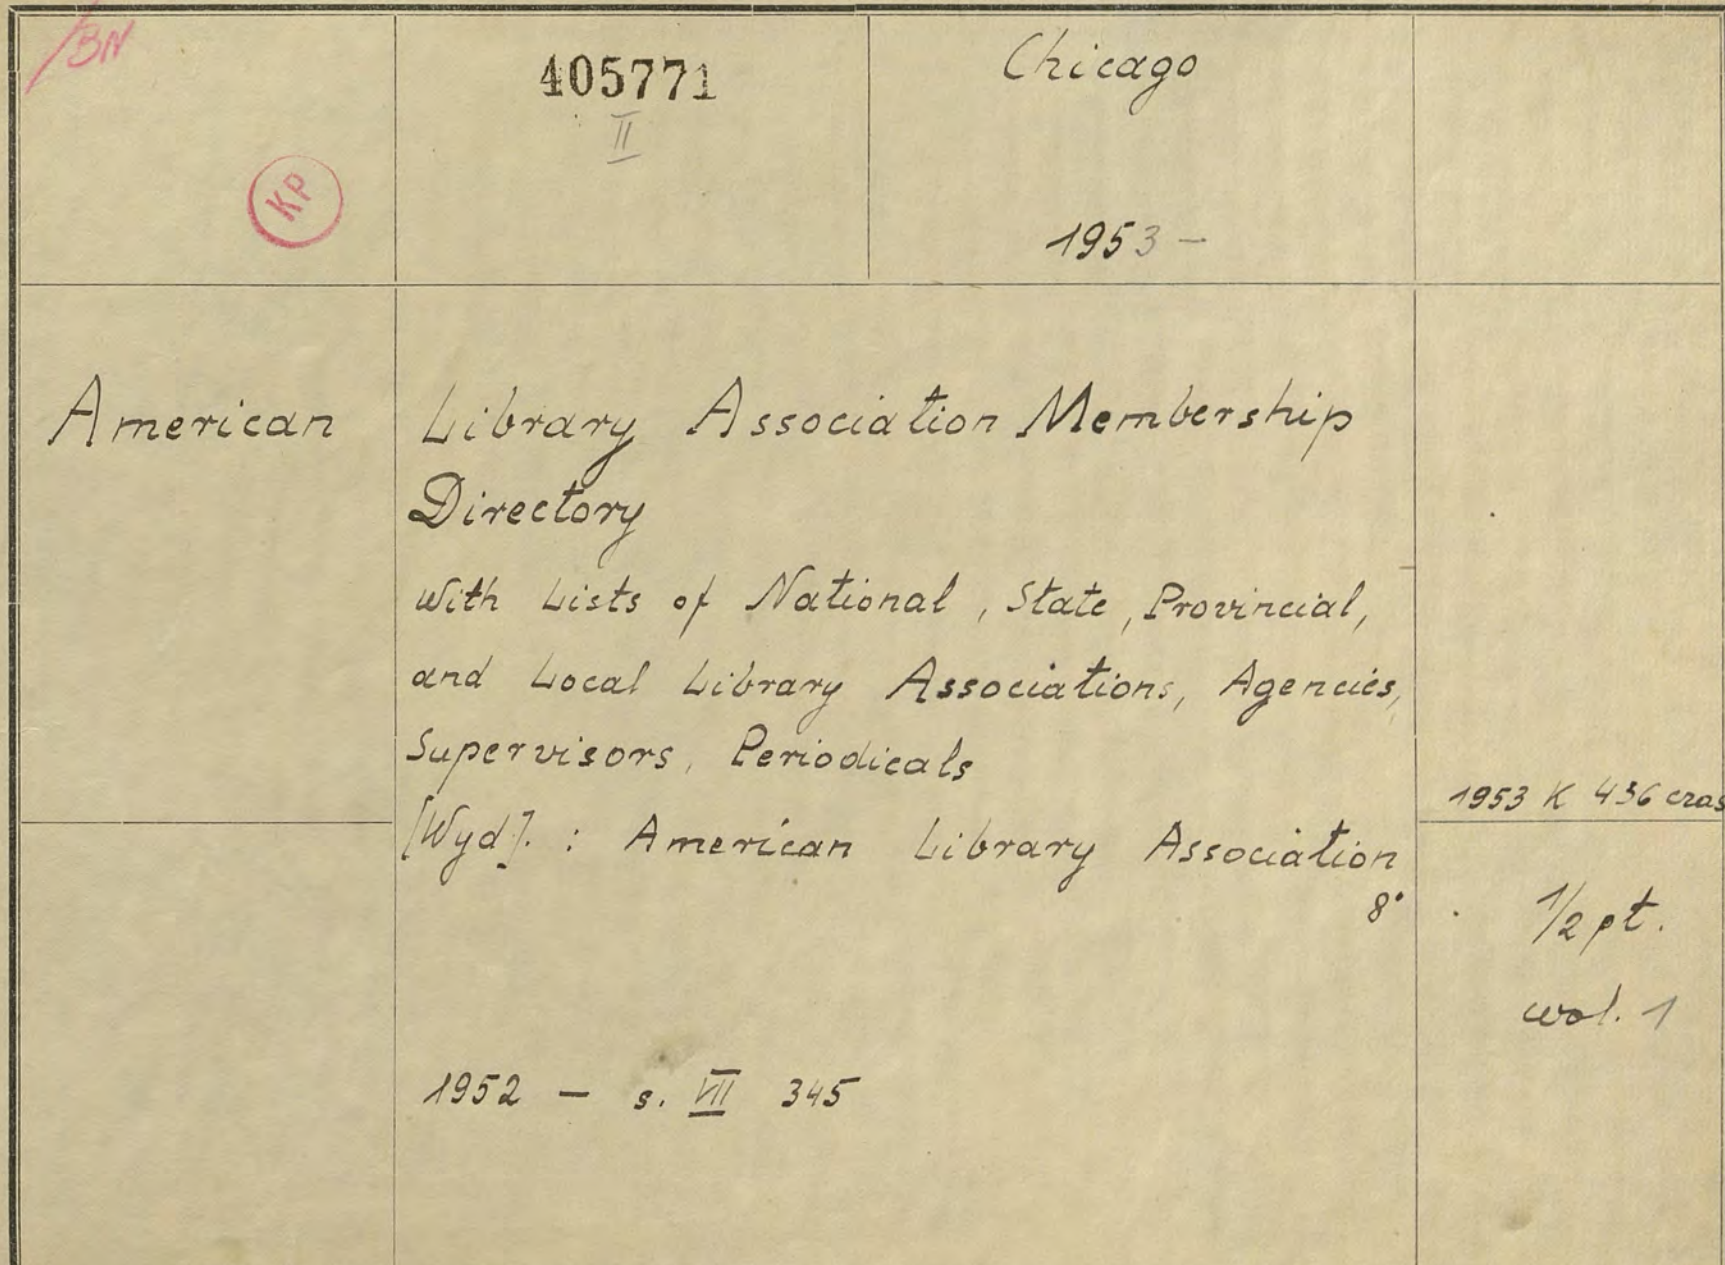 BN
405771
II
Chicago
KP
1953 -
American Library Association Membership
Directory
with Lists of National, State, Provincial,
and Local Library Associations, Agencies,
Supervisors, Periodicals
[Wyd]. : American Library Association
8°
1953 K 436 czas
1/2 pł.
wol. 1
1952 - s. VII 345